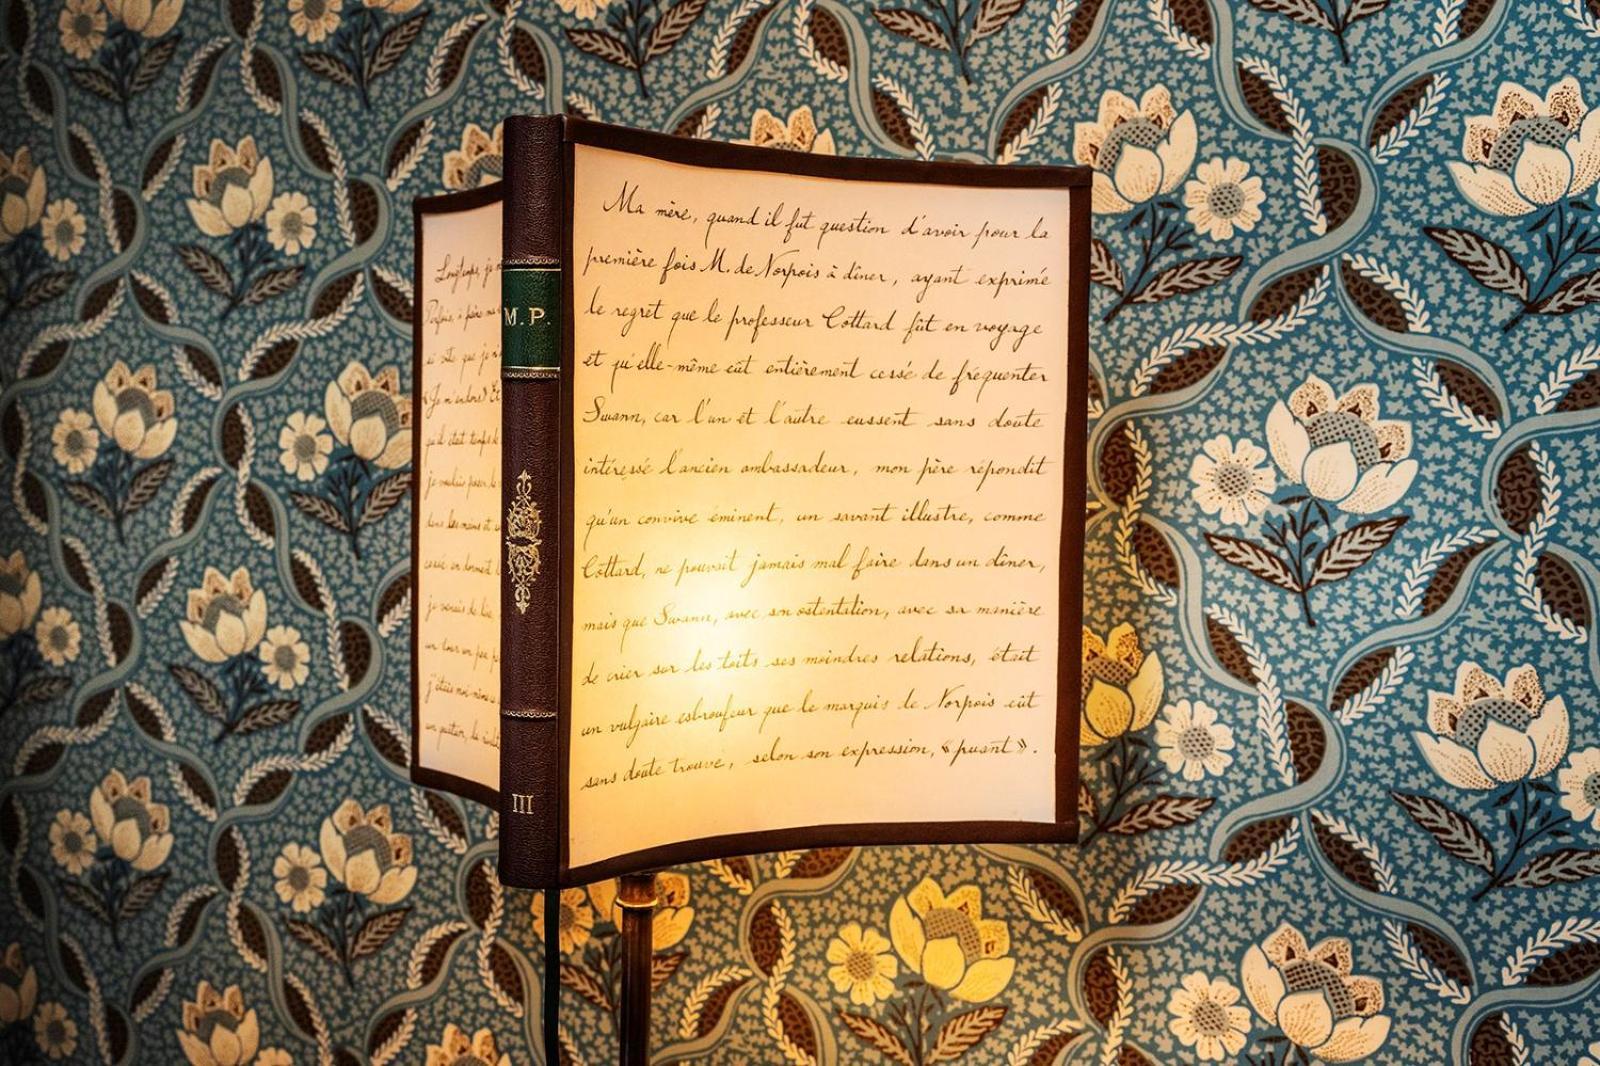 Longtemps, je
Parfois, à peine ma
si vite que je
«Je m'endors» Et
qu'il était temps de
je voulais poser le
dans les mains et
cessé en dormant
je venais de lire
un tour un peu
j'étais moi-même
un quatuor, la
M.P.
III
Ma mère, quand il fut question d'avoir pour la
première fois M. de Norpois à dîner, ayant exprimé
le regret que le professeur Cottard fût en voyage
et qu'elle-même eût entièrement cessé de fréquenter
Swann, car l'un et l'autre eussent sans doute
intéressé l'ancien ambassadeur, mon père répondit
qu'un convive éminent, un savant illustre, comme
Cottard, ne pouvait jamais mal faire dans un dîner,
mais que Swann, avec son ostentation, avec sa manière
de crier sur les toits ses moindres relations, était
un vulgaire esbroufeur que le marquis de Norpois eût
sans doute trouvé, selon son expression, «puant».